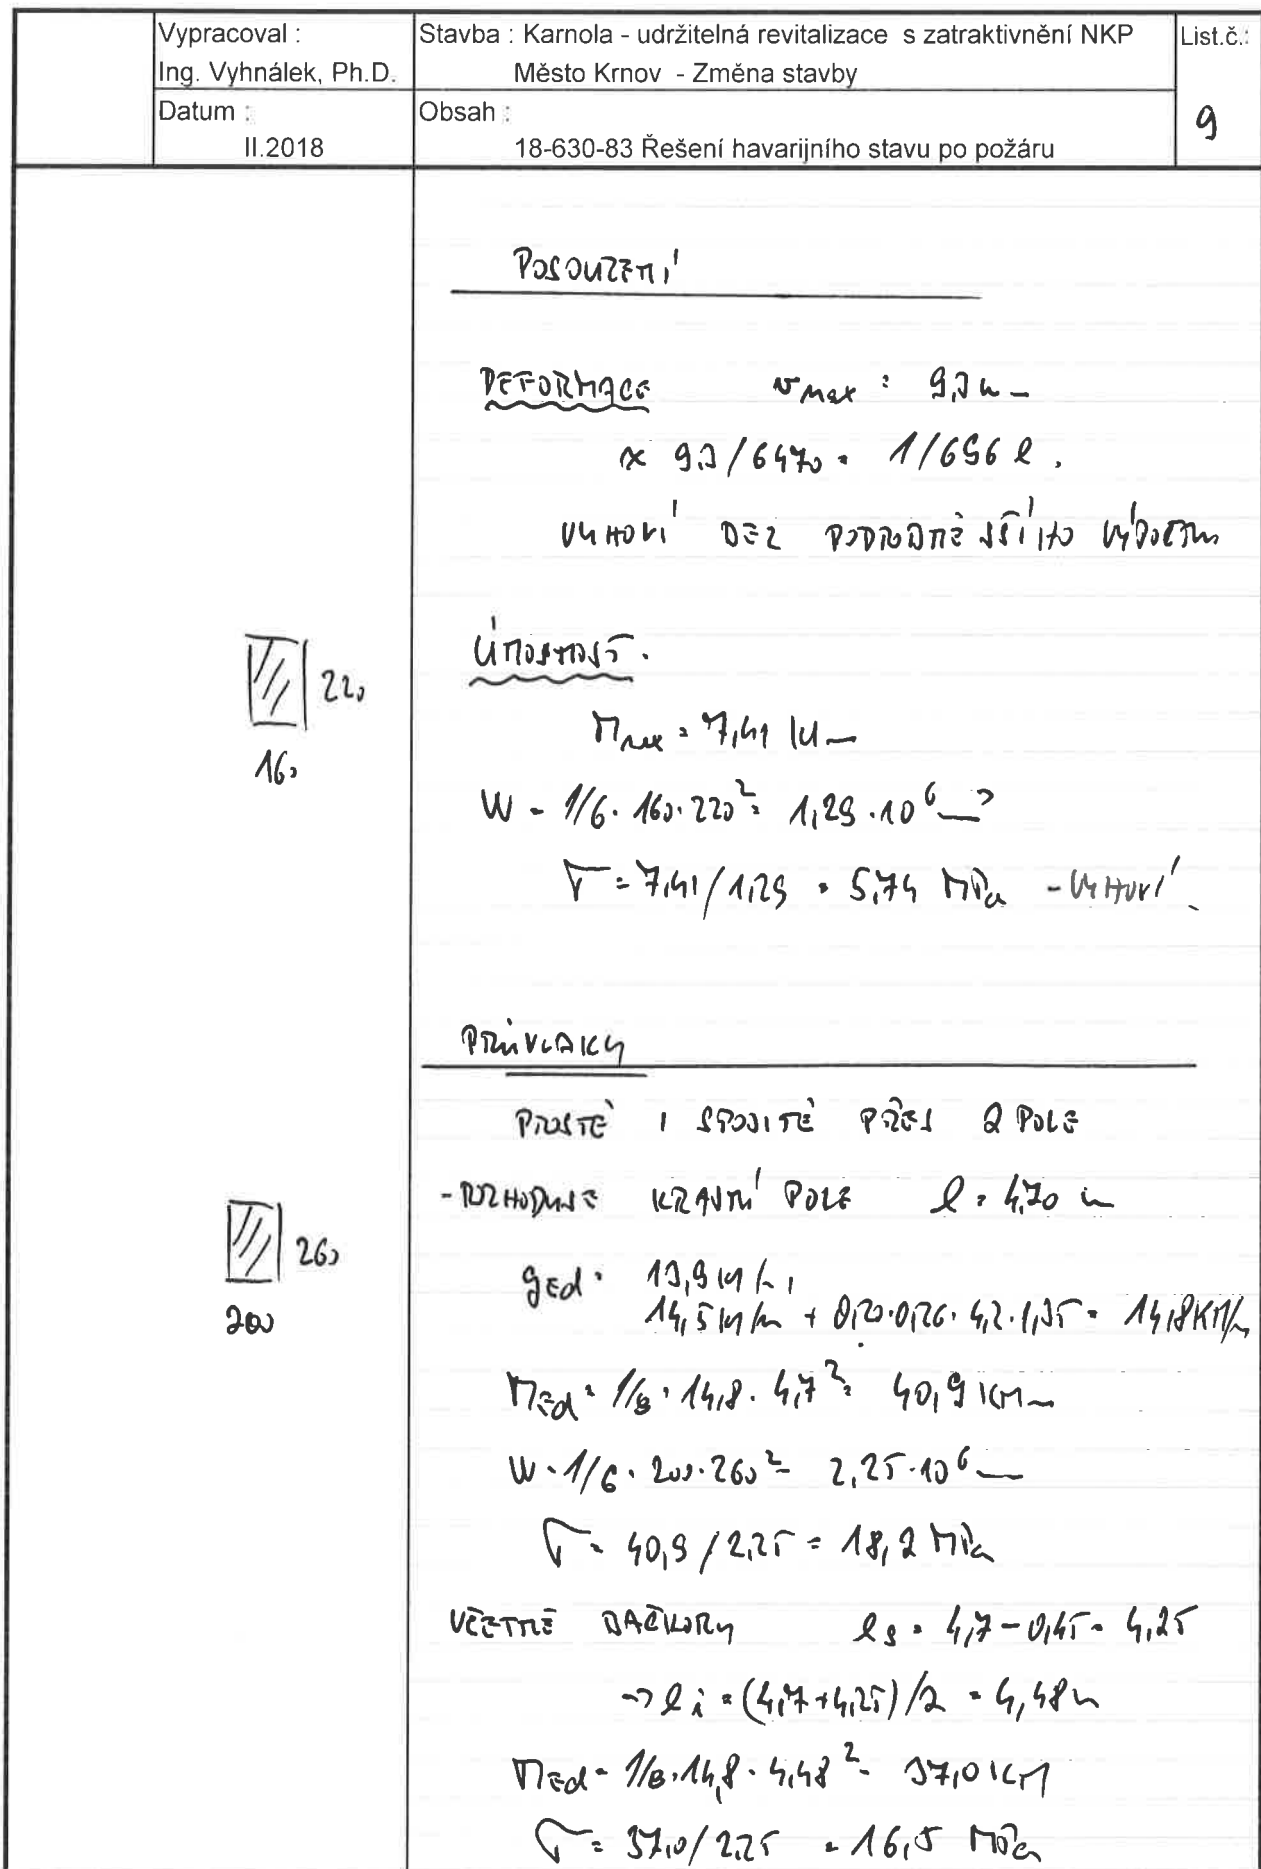 Vypracoval :
Ing. Vyhnálek, Ph.D.
Stavba : Karnola - udržitelná revitalizace s zatraktivnění NKP
Město Krnov - Změna stavby
List.č.:
9
Datum :
II.2018
Obsah :
18-630-83 Řešení havarijního stavu po požáru
POSOUZENÍ
DEFORMACE vmax = 9,3 mm
≈ 9,3/6470 = 1/696 l.
VYHOVÍ BEZ PODROBNĚJŠÍHO VÝPOČTU
ÚNOSNOST.
220
160
Mmax = 7,41 kNm
W = 1/6 · 160 · 220² = 1,29 · 10⁶ mm³
σ = 7,41/1,29 = 5,74 MPa - VYHOVÍ
PRŮVLAKY
PROSTÉ I SPOJITÉ PŘES 2 POLE
- ROZHODUJE KRAJNÍ POLE l = 4,70 m
260
200
gEd = 13,9 kN/m
14,5 kN/m + 0,20·0,26·4,2·1,35 = 14,8 KN/m
MEd = 1/8 · 14,8 · 4,7² = 40,9 KNm
W = 1/6 · 200 · 260² = 2,25·10⁶ mm
σ = 40,9/2,25 = 18,2 MPa
VČETNĚ BAČKORY ls = 4,7 - 0,45 = 4,25
→ li = (4,7+4,25)/2 = 4,48 m
MEd = 1/8 · 14,8 · 4,48² = 37,0 KN
σ = 37,0/2,25 = 16,5 MPa